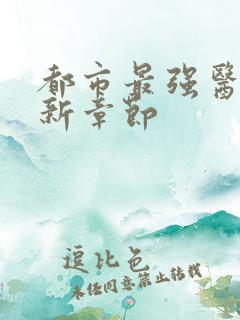 都市最强醫
新章節
逗比色
未经同意禁止转载